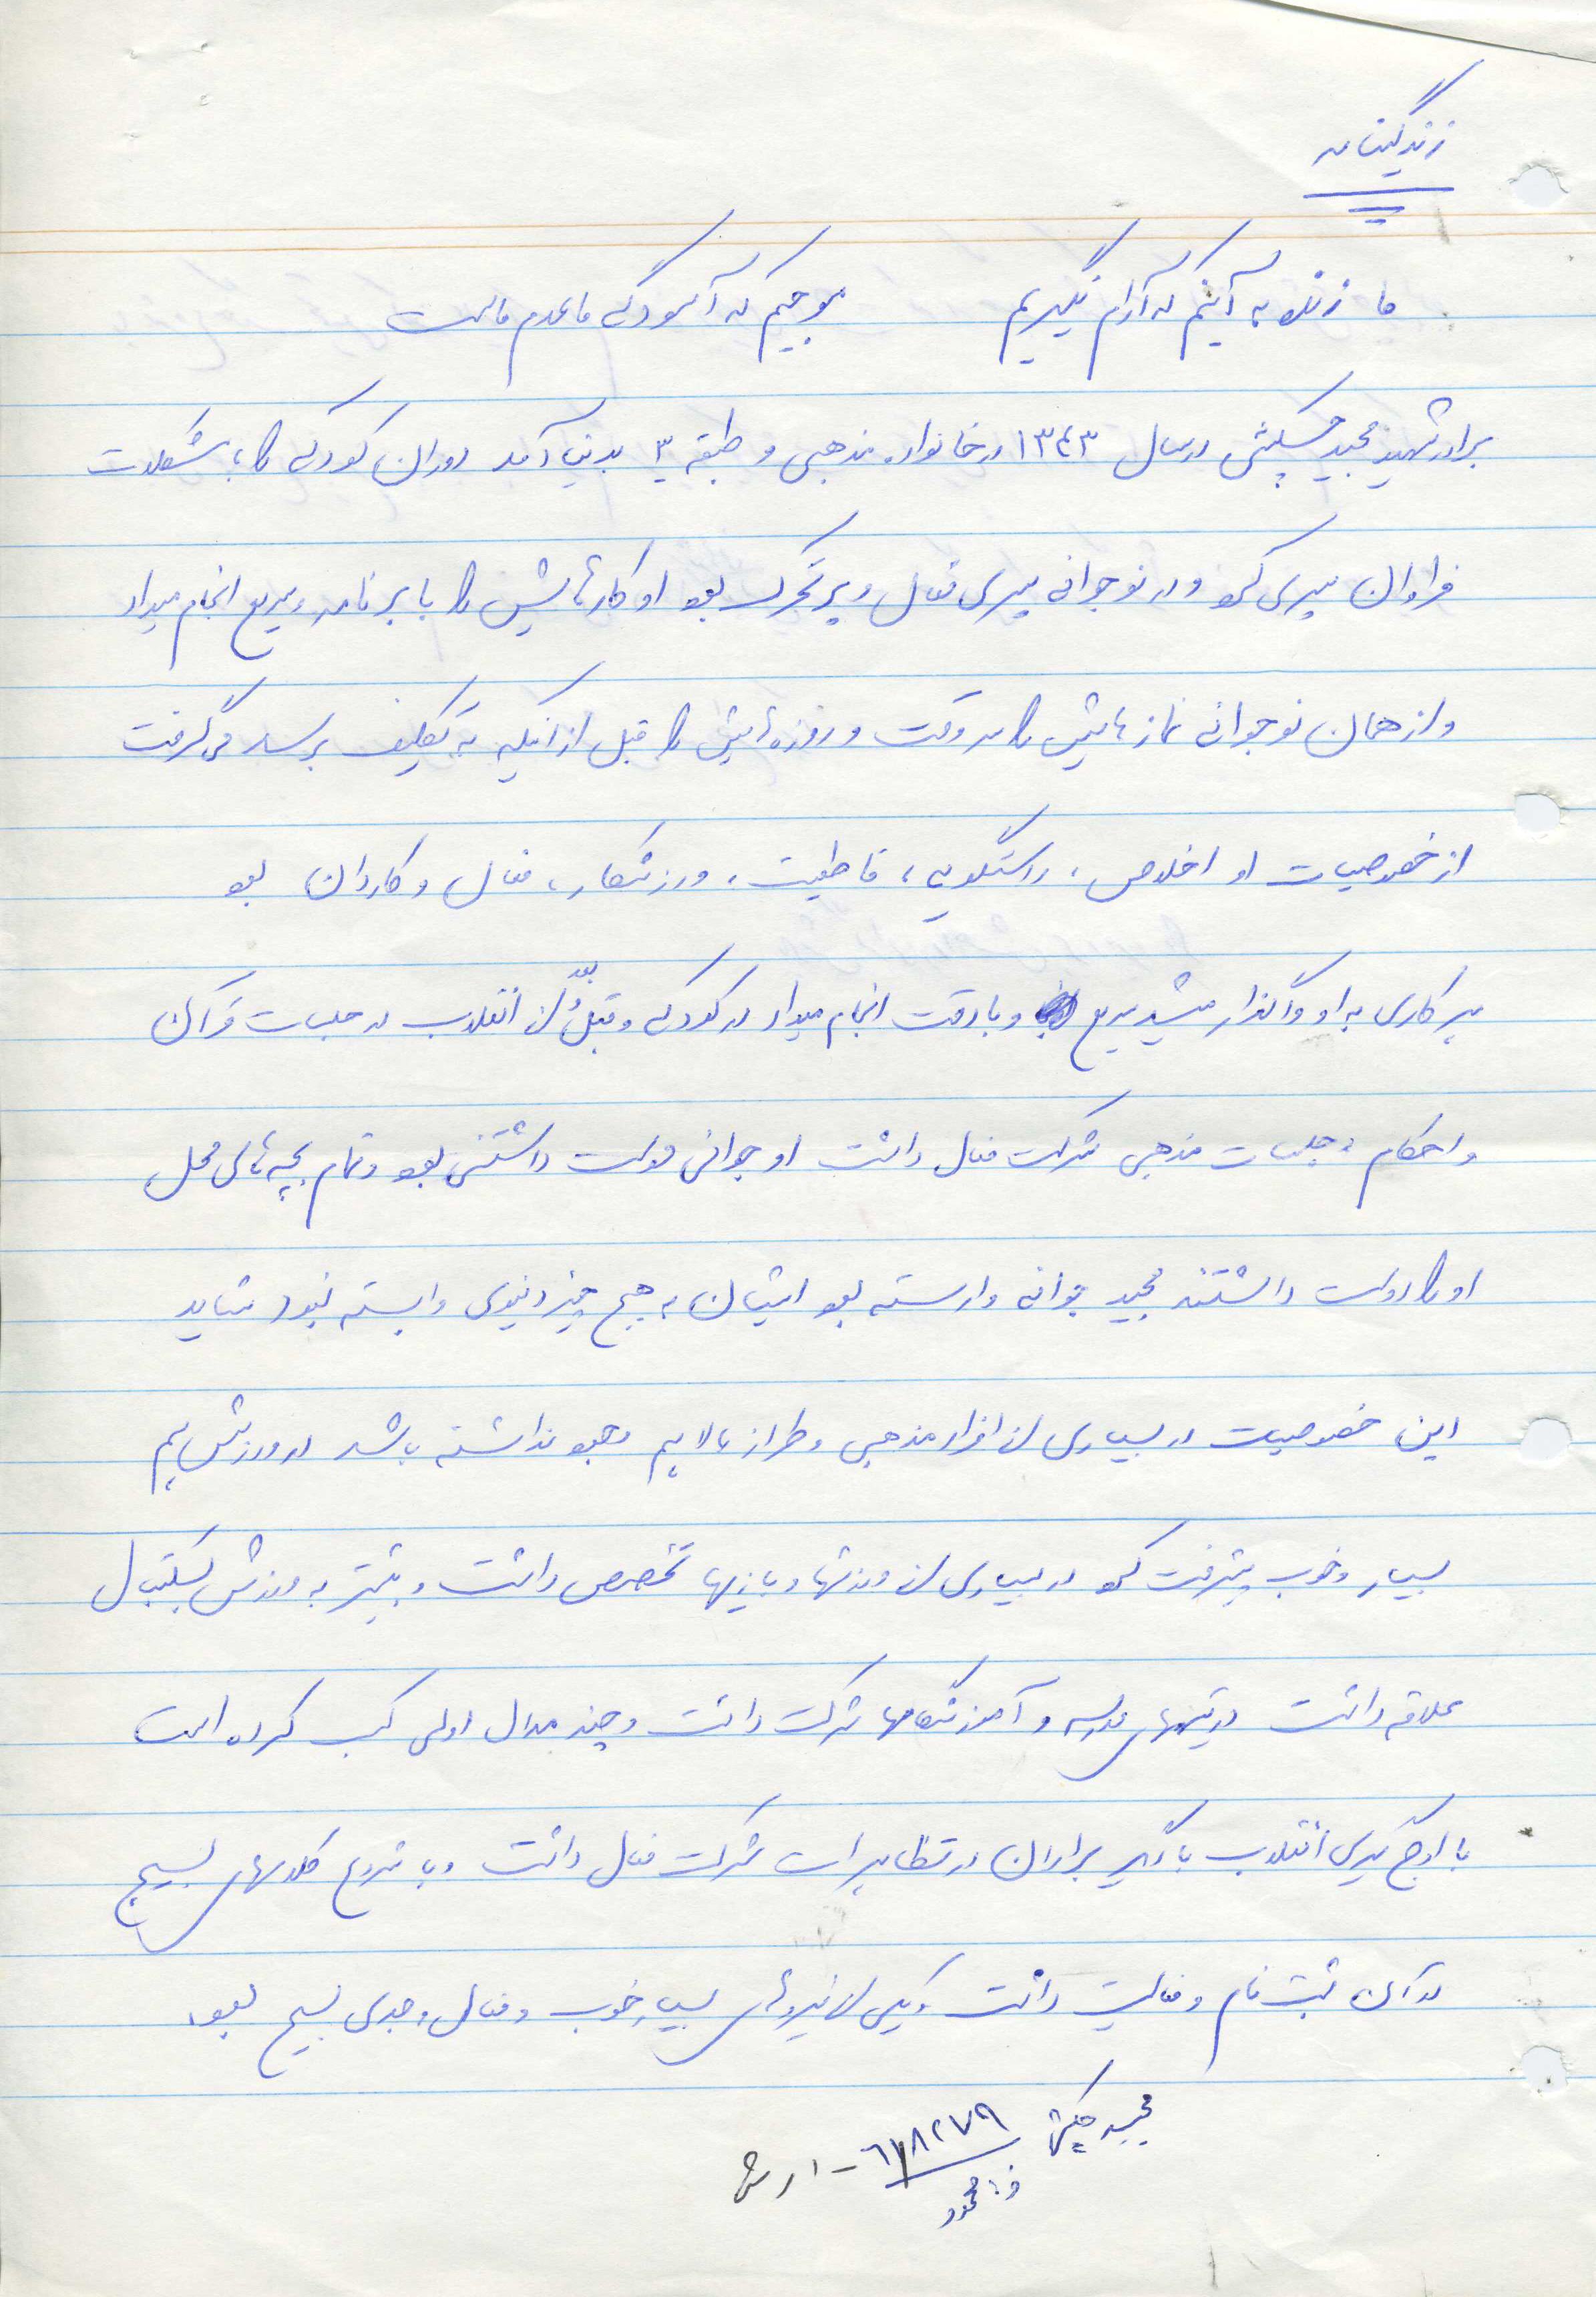 زندگینامه
ما زنده به آنیم که آرام نگیریم موجیم که آسودگی ما عدم ماست
برادر شهید مجید در سال ۱۳۴۳ در خانواده مذهبی و طبقه ۳ بدنیا آمد دوران کودکی را با مشکلات
فراوان سپری کرد و در نوجوانی پسری فعال و پر تحرک بود او کارهایش را با برنامه و سریع انجام میداد
و از همان نوجوانی نمازهایش را سر وقت و روزه‌هایش را قبل از اینکه به تکلیف برسد می گرفت
از خصوصیات او اخلاص، راستگویی، قاطعیت، ورزشکار، فعال و کاردان بود
هر کاری به او واگذار میشد سریع و با دقت انجام میداد در کودکی و قبل و بعد از انقلاب در جلسات قرآن
و احکام و جلسات مذهبی شرکت فعال داشت او جوانی دوست داشتنی بود و تمام بچه های محل
او را دوست داشتند مجید جوانی وارسته بود ایشان به هیچ چیز دنیوی وابسته نبود شاید
این خصوصیت در بسیاری از افراد مذهبی و طراز بالا هم وجود نداشته باشد در ورزش هم
بسیار خوب پیشرفت کرد در بسیاری از ورزشها و بازیها تخصص داشت و بیشتر به ورزش بسکتبال
علاقه داشت در تیمهای مدرسه و آموزشگاهها شرکت داشت و چند مدال اولی کسب کرده است
با اوج گیری انقلاب با دیگر برادران در تظاهرات شرکت فعال داشت و با شروع کلاسهای بسیج
در آن ثبت نام و فعالیت داشت و یکی از نیروهای بسیار خوب و فعال و جدی بسیج بود.
مجید ۶۱۸۲۷۹ - ارتش
ف: محمود